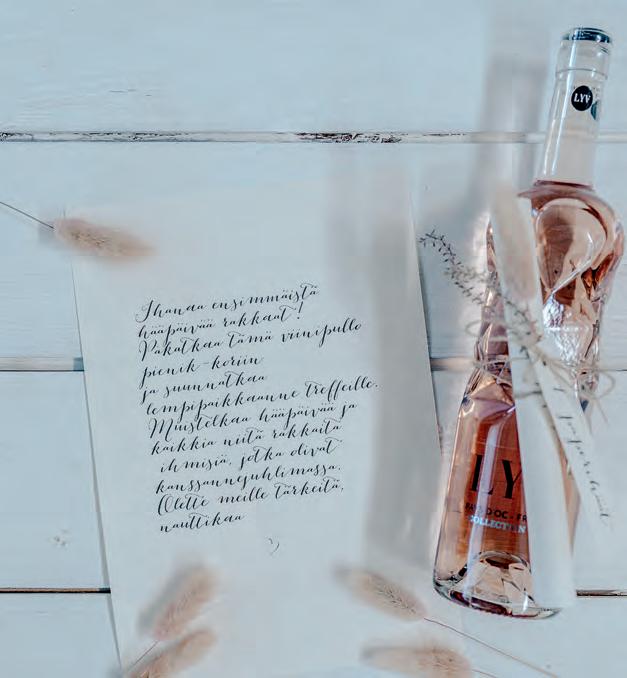 Ihanaa ensimmäistä
hääpäivää rakkaat!
Pakatkaa tämä viinipullo
pienik-koriin
ja suunnatkaa
lempipaikkaanne treffeille.
Muistelkaa hääpäivää ja
kaikkia niitä rakkaita
ihmisiä, jotka olivat
kanssannejuhlimassa.
Olette meille tärkeitä,
nauttikaa
LYV
LY
D'OC - FR
COLLECTION
paperihäät